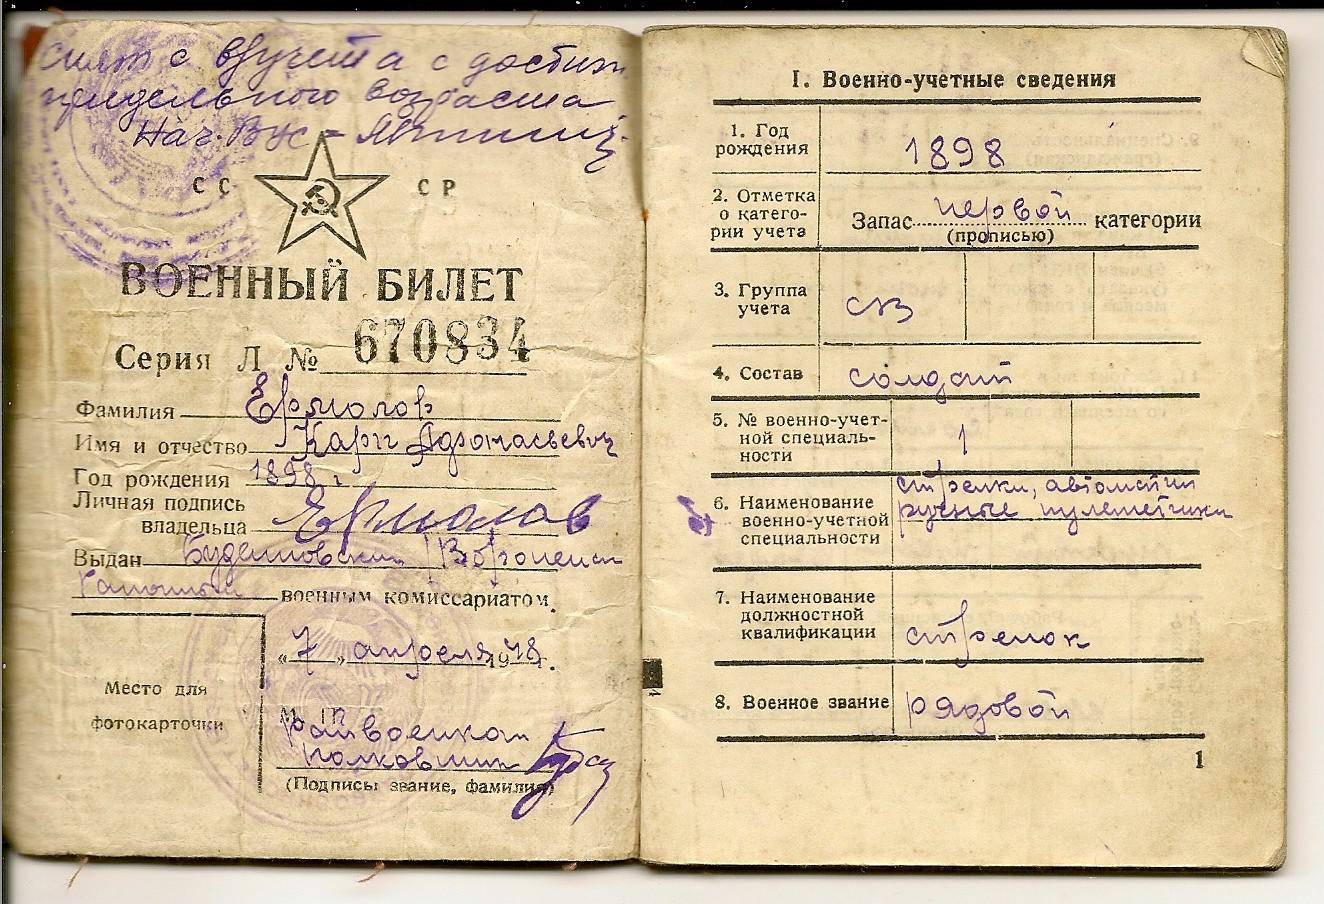 Снят с в/учета с достиж
придельного возраста
Нач. Вус -
СС СР
ВОЕННЫЙ БИЛЕТ
Серия Л № 670834
Фамилия Ермолов
Имя и отчество Карп Афонасьевич
Год рождения 1898 г
Личная подпись
владельца Ермолов
Выдан Буденновским Воронежск
военным комиссариатом.
„7" апреля 1948 г.
Место для
фотокарточки
М. П.
Райвоенком
полковник
(Подпись звание, фамилия)
I. Военно-учетные сведения
1. Год
рождения 1898
2. Отметка
о катего-
рии учета
Запас первой категории
(прописью)
3. Группа
учета СВ
4. Состав солдат
5. № военно-учет-
ной специаль-
ности 1
6. Наименование
военно-учетной
специальности
стрелки, автоматчи
ручные пулеметчики
7. Наименование
должностной
квалификации стрелок
8. Военное звание рядовой
1